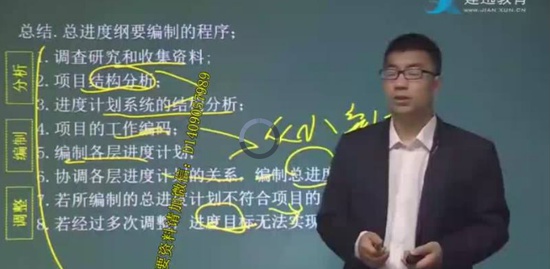 建迅教育
WWW.JIAN XUN.CN
总结. 总进度纲要编制的程序;
分析
编制
调整
1. 调查研究和收集资料;
2. 项目结构分析;
3. 进度计划系统的结构分析;
4. 项目的工作编码;
5. 编制各层进度计划;
6. 协调各层进度计划的关系, 编制总进度
7. 若所编制的总进度计划不符合项目的
8. 若经过多次调整, 进度目标无法实现
要资料请加微信: